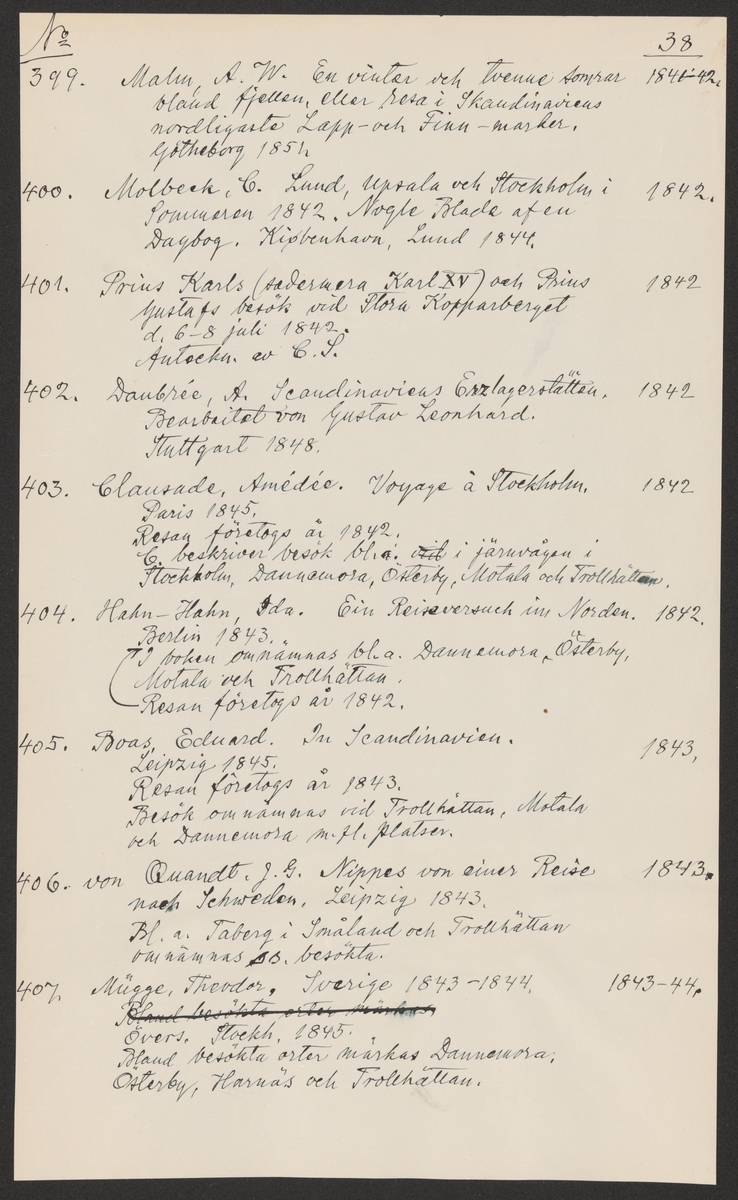 No 38
399. Malm, A. W. En vinter och tvenne somrar 1841-42.
bland fjellen, eller resa i Skandinaviens
nordligaste Lapp- och Finn-marker.
Götheborg 1851.
400. Molbeck, C. Lund, Upsala och Stockholm i 1842.
Sommeren 1842. Nogle Blade af en
Dagbog. Kiøbenhavn, Lund 1844.
401. Prins Karls (sedermera Karl XV) och Prins 1842
Gustafs besök vid Stora Kopparberget
d. 6-8 juli 1842.
Anteckn. av C. S.
402. Daubrée, A. Scandinaviens Erzlagerstätten. 1842
Bearbeitet von Gustav Leonhard.
Stuttgart 1848.
403. Clausade, Amédée. Voyage à Stockholm. 1842
Paris 1845.
Resan företogs år 1842.
C. beskriver besök bl.a. vid i järnvågen i
Stockholm, Dannemora, Österby, Motala och Trollhättan.
404. Hahn-Hahn, Ida. Ein Reiseversuch im Norden. 1842.
Berlin 1843.
I boken omnämnas bl.a. Dannemora, Österby,
Motala och Trollhättan.
Resan företogs år 1842.
405. Boas, Eduard. In Scandinavien. 1843.
Leipzig 1845.
Resan företogs år 1843.
Besök omnämnas vid Trollhättan, Motala
och Dannemora m.fl. platser.
406. von Quandt. J. G. Nippes von einer Reise 1843.
nach Schweden. Leipzig 1843.
Bl. a. Taberg i Småland och Trollhättan
omnämnas ss. besökta.
407. Mügge, Theodor. Sverige 1843-1844. 1843-44.
Bland besökta orter märkas
Övers. Stockh. 1845.
Bland besökta orter märkas Dannemora,
Österby, Harnäs och Trollhättan.